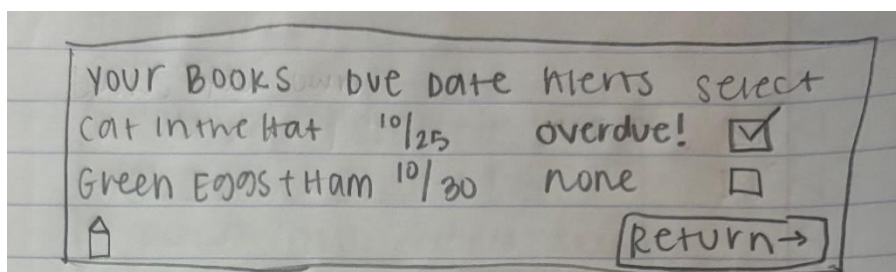 YOUR BOOKS Due Date Alerts select
Cat in the Hat 10/25 overdue! ☑
Green Eggs + Ham 10/30 none ☐
Return→